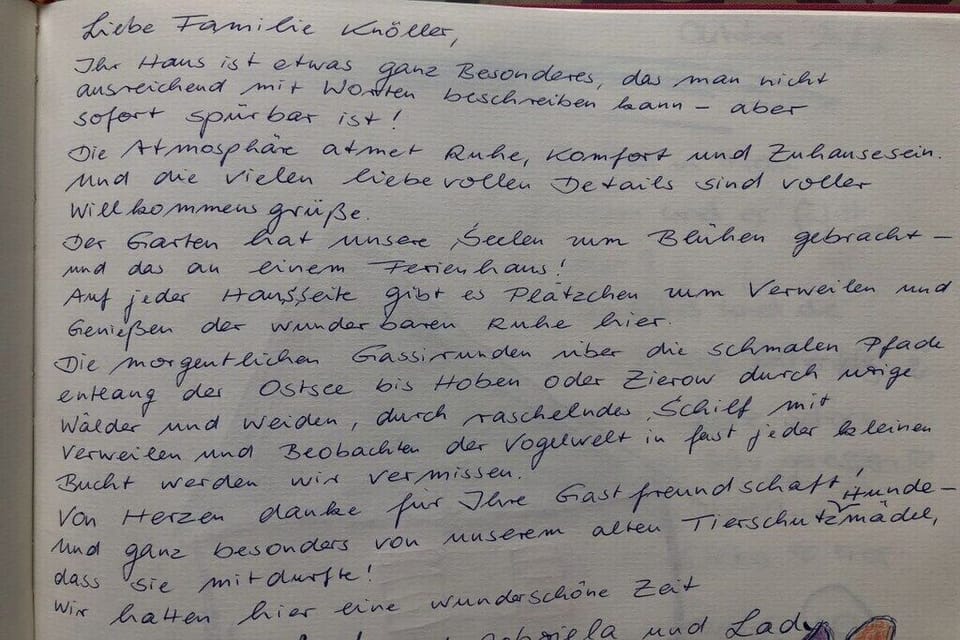 Liebe Familie Knöller,
Ihr Haus ist etwas ganz Besonderes, das man nicht
ausreichend mit Worten beschreiben kann – aber
sofort spürbar ist!
Die Atmosphäre atmet Ruhe, Komfort und Zuhausesein.
Und die vielen liebevollen Details sind voller
Willkommensgrüße.
Der Garten hat unsere Seelen zum Blühen gebracht –
und das an einem Ferienhaus!
Auf jeder Hausseite gibt es Plätzchen zum Verweilen und
Genießen der wunderbaren Ruhe hier.
Die morgentlichen Gassirunden über die schmalen Pfade
entlang der Ostsee bis Hoben oder Zierow durch urige
Wälder und Weiden, durch raschelndes Schilf mit
Verweilen und Beobachten der Vogelwelt in fast jeder kleinen
Bucht werden wir vermissen.
Von Herzen danke für Ihre Gastfreundschaft!
Und ganz besonders von unserem alten Tierschutz Hunde-
mädel,
dass sie mitdurfte!
Wir hatten hier eine wunderschöne Zeit
Gabriela und Lady